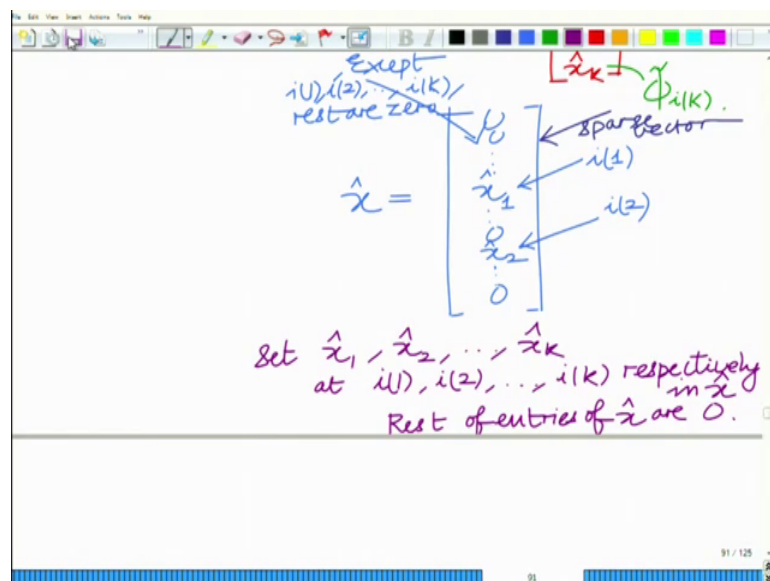 File Edit View Insert Actions Tools Help
Except
i(1), i(2), .., i(K),
rest are zero
x̂_K
Φ̃_{i(K)}.
sparse
vector
x̂ =
0
0
⋮
x̂_1
i(1)
⋮
0
x̂_2
i(2)
⋮
0
Set x̂_1, x̂_2, .., x̂_K
at i(1), i(2), .., i(K) respectively
in x̂
Rest of entries of x̂ are 0.
91 / 125
91